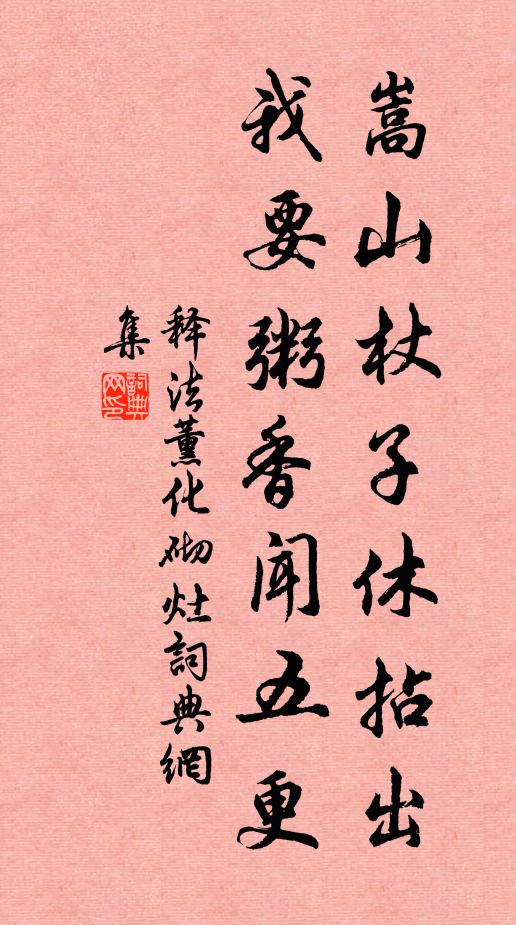 嵩山杖子休拈出
我要粥香闻五更
释法薰化砌灶詞典網
集
詞典
网印